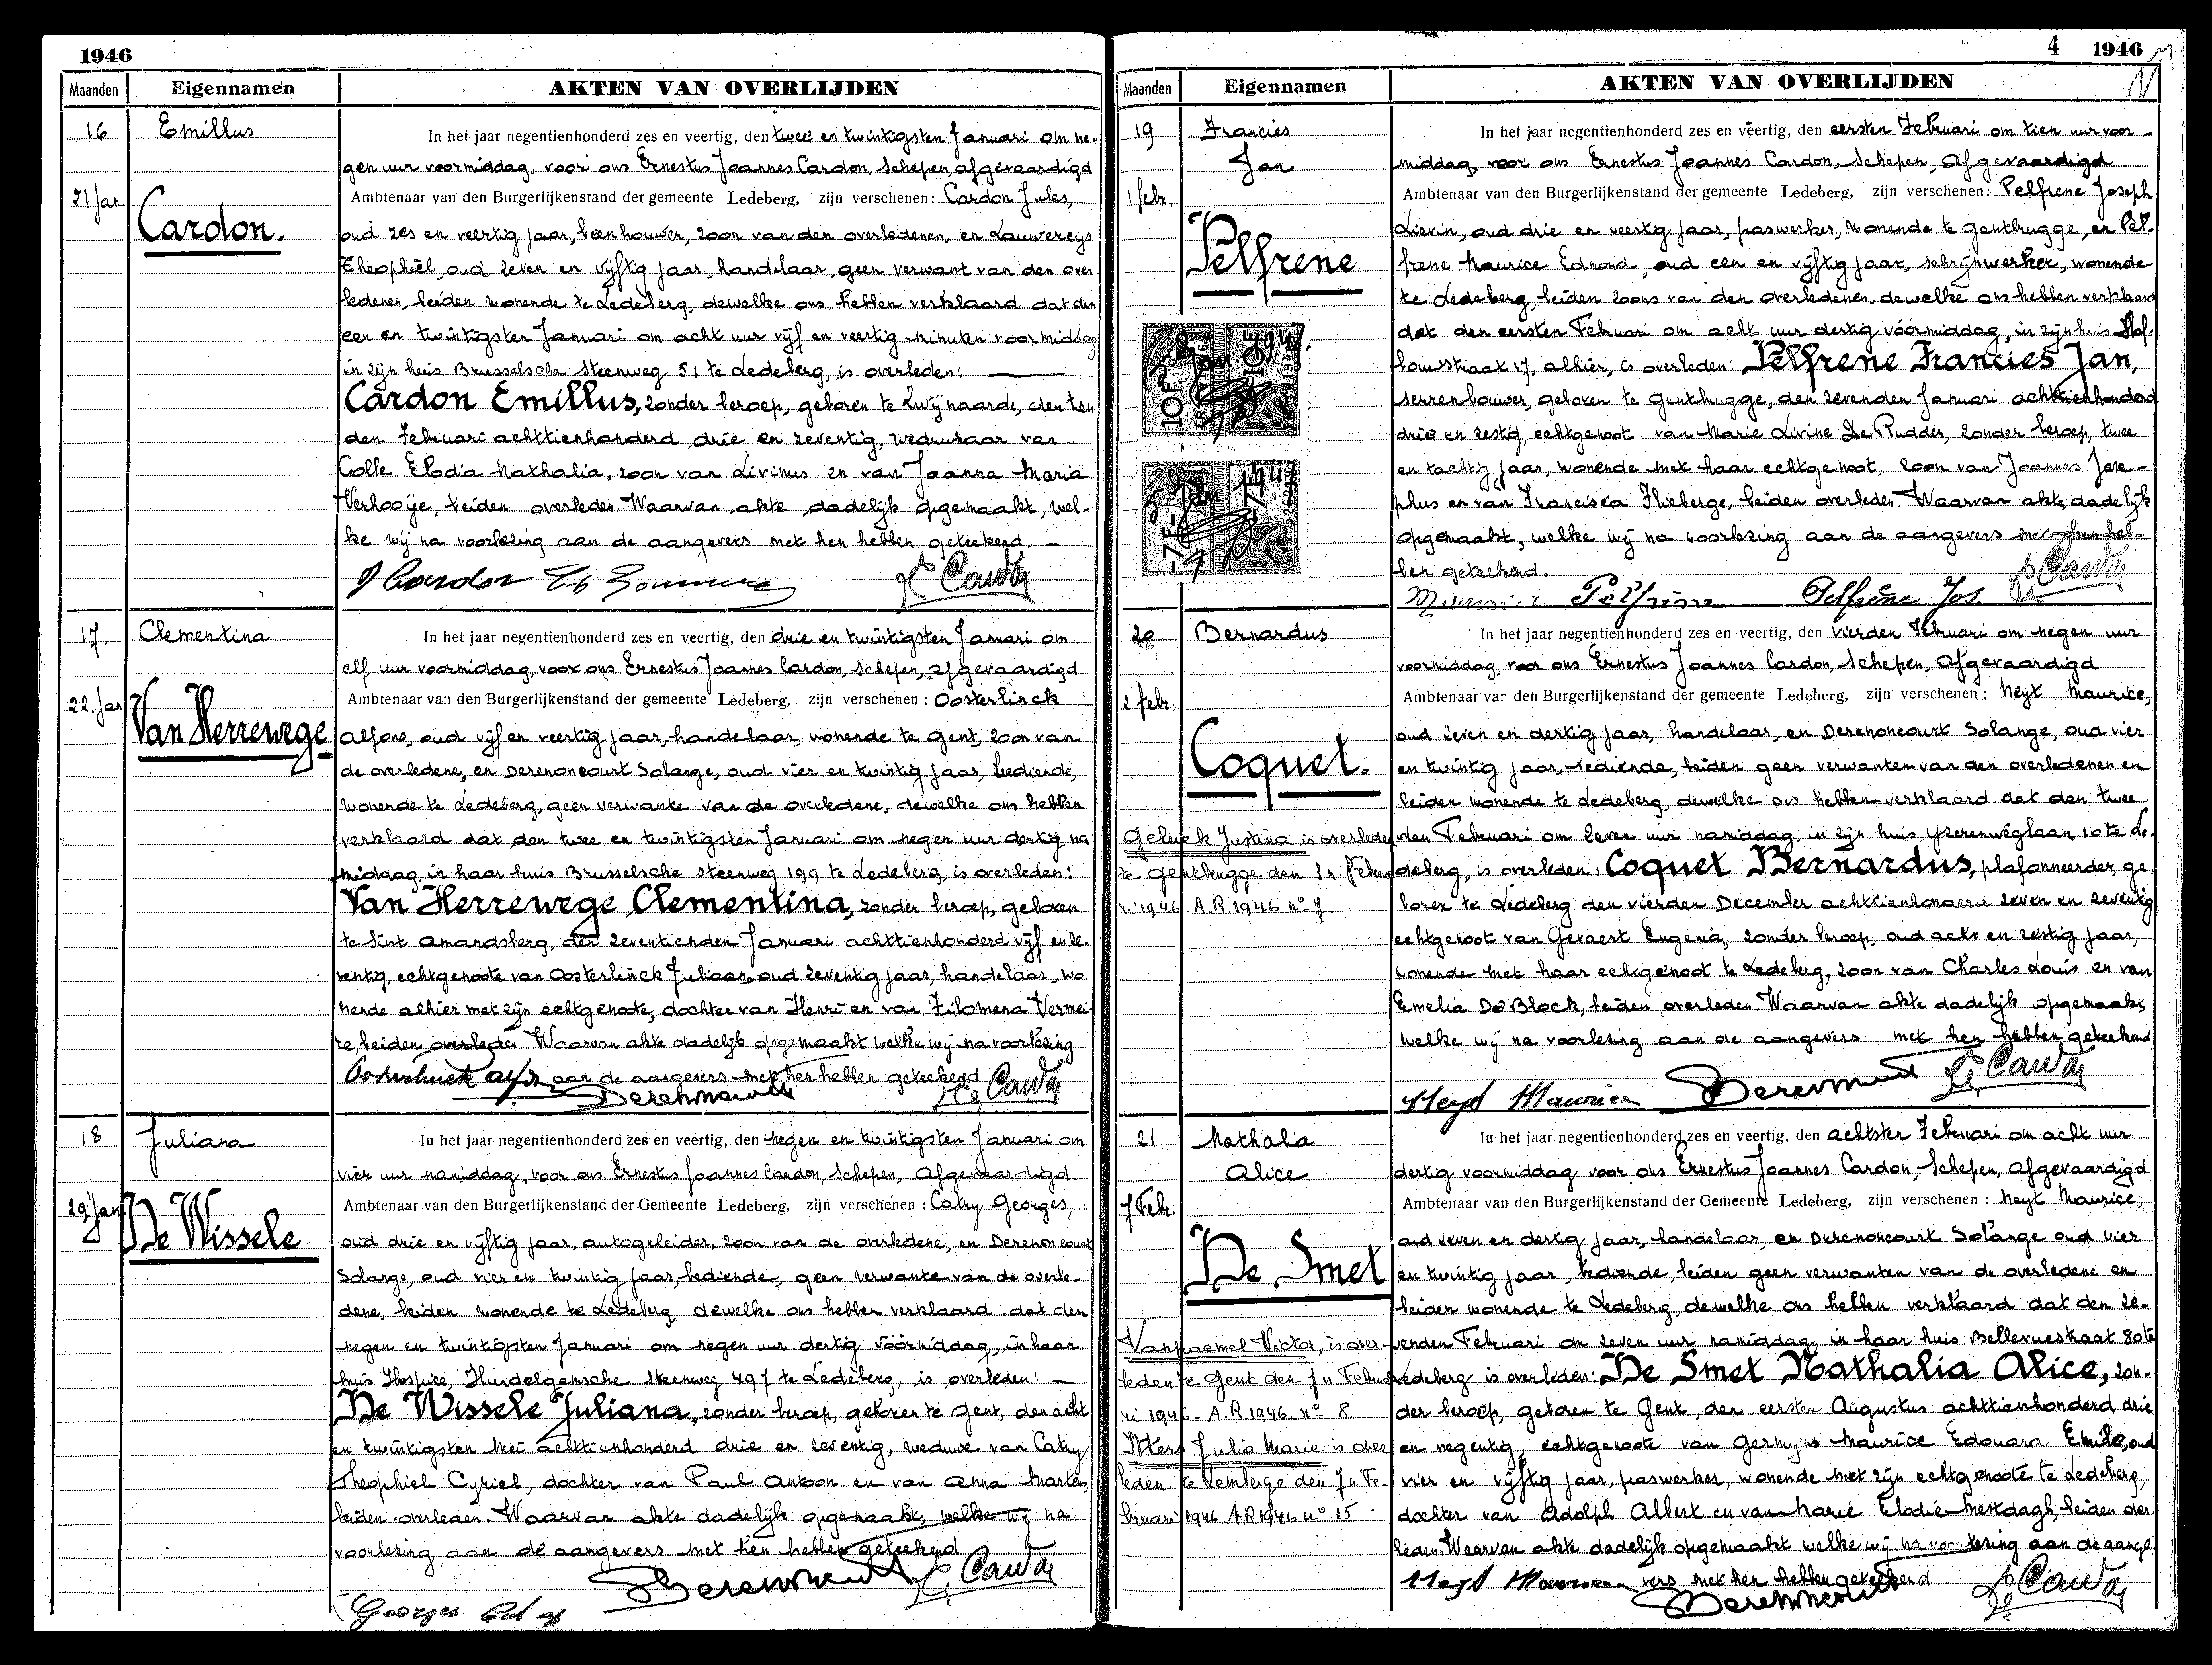 1946
Maanden Eigennamen AKTEN VAN OVERLIJDEN
16 Emillus
21 Jan
Cardon.
In het jaar negentienhonderd zes en veertig, den twee en twintigsten Januari om ne-
gen uur voormiddag, voor ons Ernestus Joannes Cardon, Schepen, afgevaardigd
Ambtenaar van den Burgerlijkenstand der gemeente Ledeberg, zijn verschenen: Cardon Jules,
oud zes en veertig jaar, beenhouwer, zoon van den overledenen, en Lauwereys
Theophiel, oud zeven en vijftig jaar, handelaar, geen verwant van den over
ledenen, beiden wonende te Ledeberg, dewelke ons hebben verklaard dat den
een en twintigsten Januari om acht uur vijf en veertig minuten voormiddag
in zijn huis Brusselsche Steenweg 51 te Ledeberg, is overleden:
Cardon Emillus, zonder beroep, geboren te Zwijnaarde, den tien
den Februari achttienhonderd drie en zeventig, weduwnaar van
Colle Elodia Nathalia, zoon van Livinus en van Joanna Maria
Verhooije, beiden overleden. Waarvan akte dadelijk opgemaakt, wel-
ke wij na voorlezing aan de aangevers met hen hebben geteekend.
J Cardon
17 Clementina
22 Jan
Van Herrewege
In het jaar negentienhonderd zes en veertig, den drie en twintigsten Januari om
elf uur voormiddag, voor ons Ernestus Joannes Cardon, Schepen, afgevaardigd
Ambtenaar van den Burgerlijkenstand der gemeente Ledeberg, zijn verschenen: Oosterlinck
Alfons, oud vijf en veertig jaar, handelaar, wonende te Gent, zoon van
de overledene, en Derenoncourt Solange, oud vier en twintig jaar, bediende,
wonende te Ledeberg, geen verwante van de overledene, dewelke ons hebben
verklaard dat den twee en twintigsten Januari om negen uur dertig na
middag, in haar huis Brusselsche steenweg 199 te Ledeberg, is overleden:
Van Herrewege Clementina, zonder beroep, geboren
te Sint Amandsberg, den zeventienden Januari achttienhonderd vijf en ze-
ventig, echtgenoote van Oosterlinck Juliaan, oud zeventig jaar, handelaar, wo
nende alhier met zijn echtgenoote, dochter van Henri en van Filomena Vermei-
re, beiden overleden. Waarvan akte dadelijk opgemaakt welke wij na voorlezing
aan de aangevers met hen hebben geteekend
Oosterlinck Alfons Derenoncourt
18 Juliana
29 Jan
De Wissele
In het jaar negentienhonderd zes en veertig, den negen en twintigsten Januari om
vier uur namiddag, voor ons Ernestus Joannes Cardon, Schepen, Afgevaardigd
Ambtenaar van den Burgerlijkenstand der Gemeente Ledeberg, zijn verschenen: Catry Georges,
oud drie en vijftig jaar, autogeleider, zoon van de overledene, en Derenoncourt
Solange, oud vier en twintig jaar, bediende, geen verwante van de overle-
dene, beiden wonende te Ledeberg, dewelke ons hebben verklaard dat den
negen en twintigsten Januari om negen uur dertig vóórmiddag, in haar
huis, Hospice, Hundelgemsche steenweg 497 te Ledeberg, is overleden:
De Wissele Juliana, zonder beroep, geboren te Gent, den acht
en twintigsten Mei achttienhonderd drie en zeventig, weduwe van Catry
Theophiel Cyriel, dochter van Paul Antoon en van Anna Martens,
beiden overleden. Waarvan akte dadelijk opgemaakt, welke wij na
voorlezing aan de aangevers met hen hebben geteekend
Georges Derenoncourt
4 1946
Maanden Eigennamen AKTEN VAN OVERLIJDEN
19 Francies
Jan
1 febr.
Pelfrene
In het jaar negentienhonderd zes en veertig, den eersten Februari om tien uur voor-
middag, voor ons Ernestus Joannes Cardon, Schepen, Afgevaardigd
Ambtenaar van den Burgerlijkenstand der gemeente Ledeberg, zijn verschenen: Pelfrene Joseph
Lievin, oud drie en veertig jaar, paswerker, wonende te Gentbrugge, en Pel-
frene Maurice Edmond, oud een en vijftig jaar, schrijnwerker, wonende
te Ledeberg, beiden zoons van den overledenen, dewelke ons hebben verklaard
dat den eersten Februari om acht uur dertig vóórmiddag, in zijn huis Hof-
bouwstraat 17, alhier, is overleden: Pelfrene Francies Jan,
serrenbouwer, geboren te Gentbrugge, den zevenden Januari achttienhonderd
drie en zestig, echtgenoot van Marie Livine De Rudder, zonder beroep, twee
en tachtig jaar, wonende met haar echtgenoot, zoon van Joannes Jose-
phus en van Francisca Flieberge, beiden overleden. Waarvan akte, dadelijk
opgemaakt, welke wij na voorlezing aan de aangevers met hen heb-
ben geteekend.
Pelfrene Pelfrene Jos.
20 Bernardus
2 febr.
Coquet.
In het jaar negentienhonderd zes en veertig, den vierden Februari om negen uur
voormiddag, voor ons Ernestus Joannes Cardon, Schepen, Afgevaardigd
Ambtenaar van den Burgerlijkenstand der gemeente Ledeberg, zijn verschenen: Neyt Maurice,
oud zeven en dertig jaar, handelaar, en Derenoncourt Solange, oud vier
en twintig jaar, bediende, beiden geen verwanten van den overledenen en
beiden wonende te Ledeberg, dewelke ons hebben verklaard dat den twee
den Februari om zeven uur namiddag, in zijn huis Yzerenweglaan 10 te Le-
deberg, is overleden: Coquet Bernardus, plafonneerder, ge
boren te Ledeberg den vierden December achttienhonderd zeven en zeventig
echtgenoot van Gevaert Eugenia, zonder beroep, oud acht en zestig jaar,
wonende met haar echtgenoot te Ledeberg, zoon van Charles Louis en van
Emelia De Block, beiden overleden. Waarvan akte dadelijk opgemaakt,
welke wij na voorlezing aan de aangevers met hen hebben geteekend
Neyt Maurice Derenoncourt
Geluck Justina is overleden
te Gentbrugge den Februa
ri 1946 A.R. 1946 nº 7
21 Nathalia
Alice
7 Febr.
De Smet
In het jaar negentienhonderd zes en veertig, den achtsten Februari om acht uur
dertig voormiddag voor ons Ernestus Joannes Cardon, Schepen, Afgevaardigd
Ambtenaar van den Burgerlijkenstand der Gemeente Ledeberg, zijn verschenen: Neyt Maurice,
oud zeven en dertig jaar, handelaar, en Derenoncourt Solange oud vier
en twintig jaar, bediende, beiden geen verwanten van de overledene en
beiden wonende te Ledeberg, dewelke ons hebben verklaard dat den ze-
venden Februari om zeven uur namiddag in haar huis Bellevuestraat 80 te
Ledeberg is overleden: De Smet Nathalia Alice, zon-
der beroep, geboren te Gent, den eersten Augustus achttienhonderd drie
en negentig, echtgenoote van Germyns Maurice Edouard Emile, oud
vier en vijftig jaar, paswerker, wonende met zijn echtgenoote te Ledeberg,
dochter van Adolph Albert en van Marie Elodie Mestdagh, beiden over
leden. Waarvan akte dadelijk opgemaakt welke wij na voorlezing aan de aange-
vers met hen hebben geteekend
Neyt Maurice Derenoncourt
Vanpaemel Victor, is over-
leden te Gent den 7n Februa
ri 1946 - A.R. 1946 nº 8
Julia Marie is over
leden te Lemberge den 7n Fe-
bruari 1946 A.R. 1946 nº 15